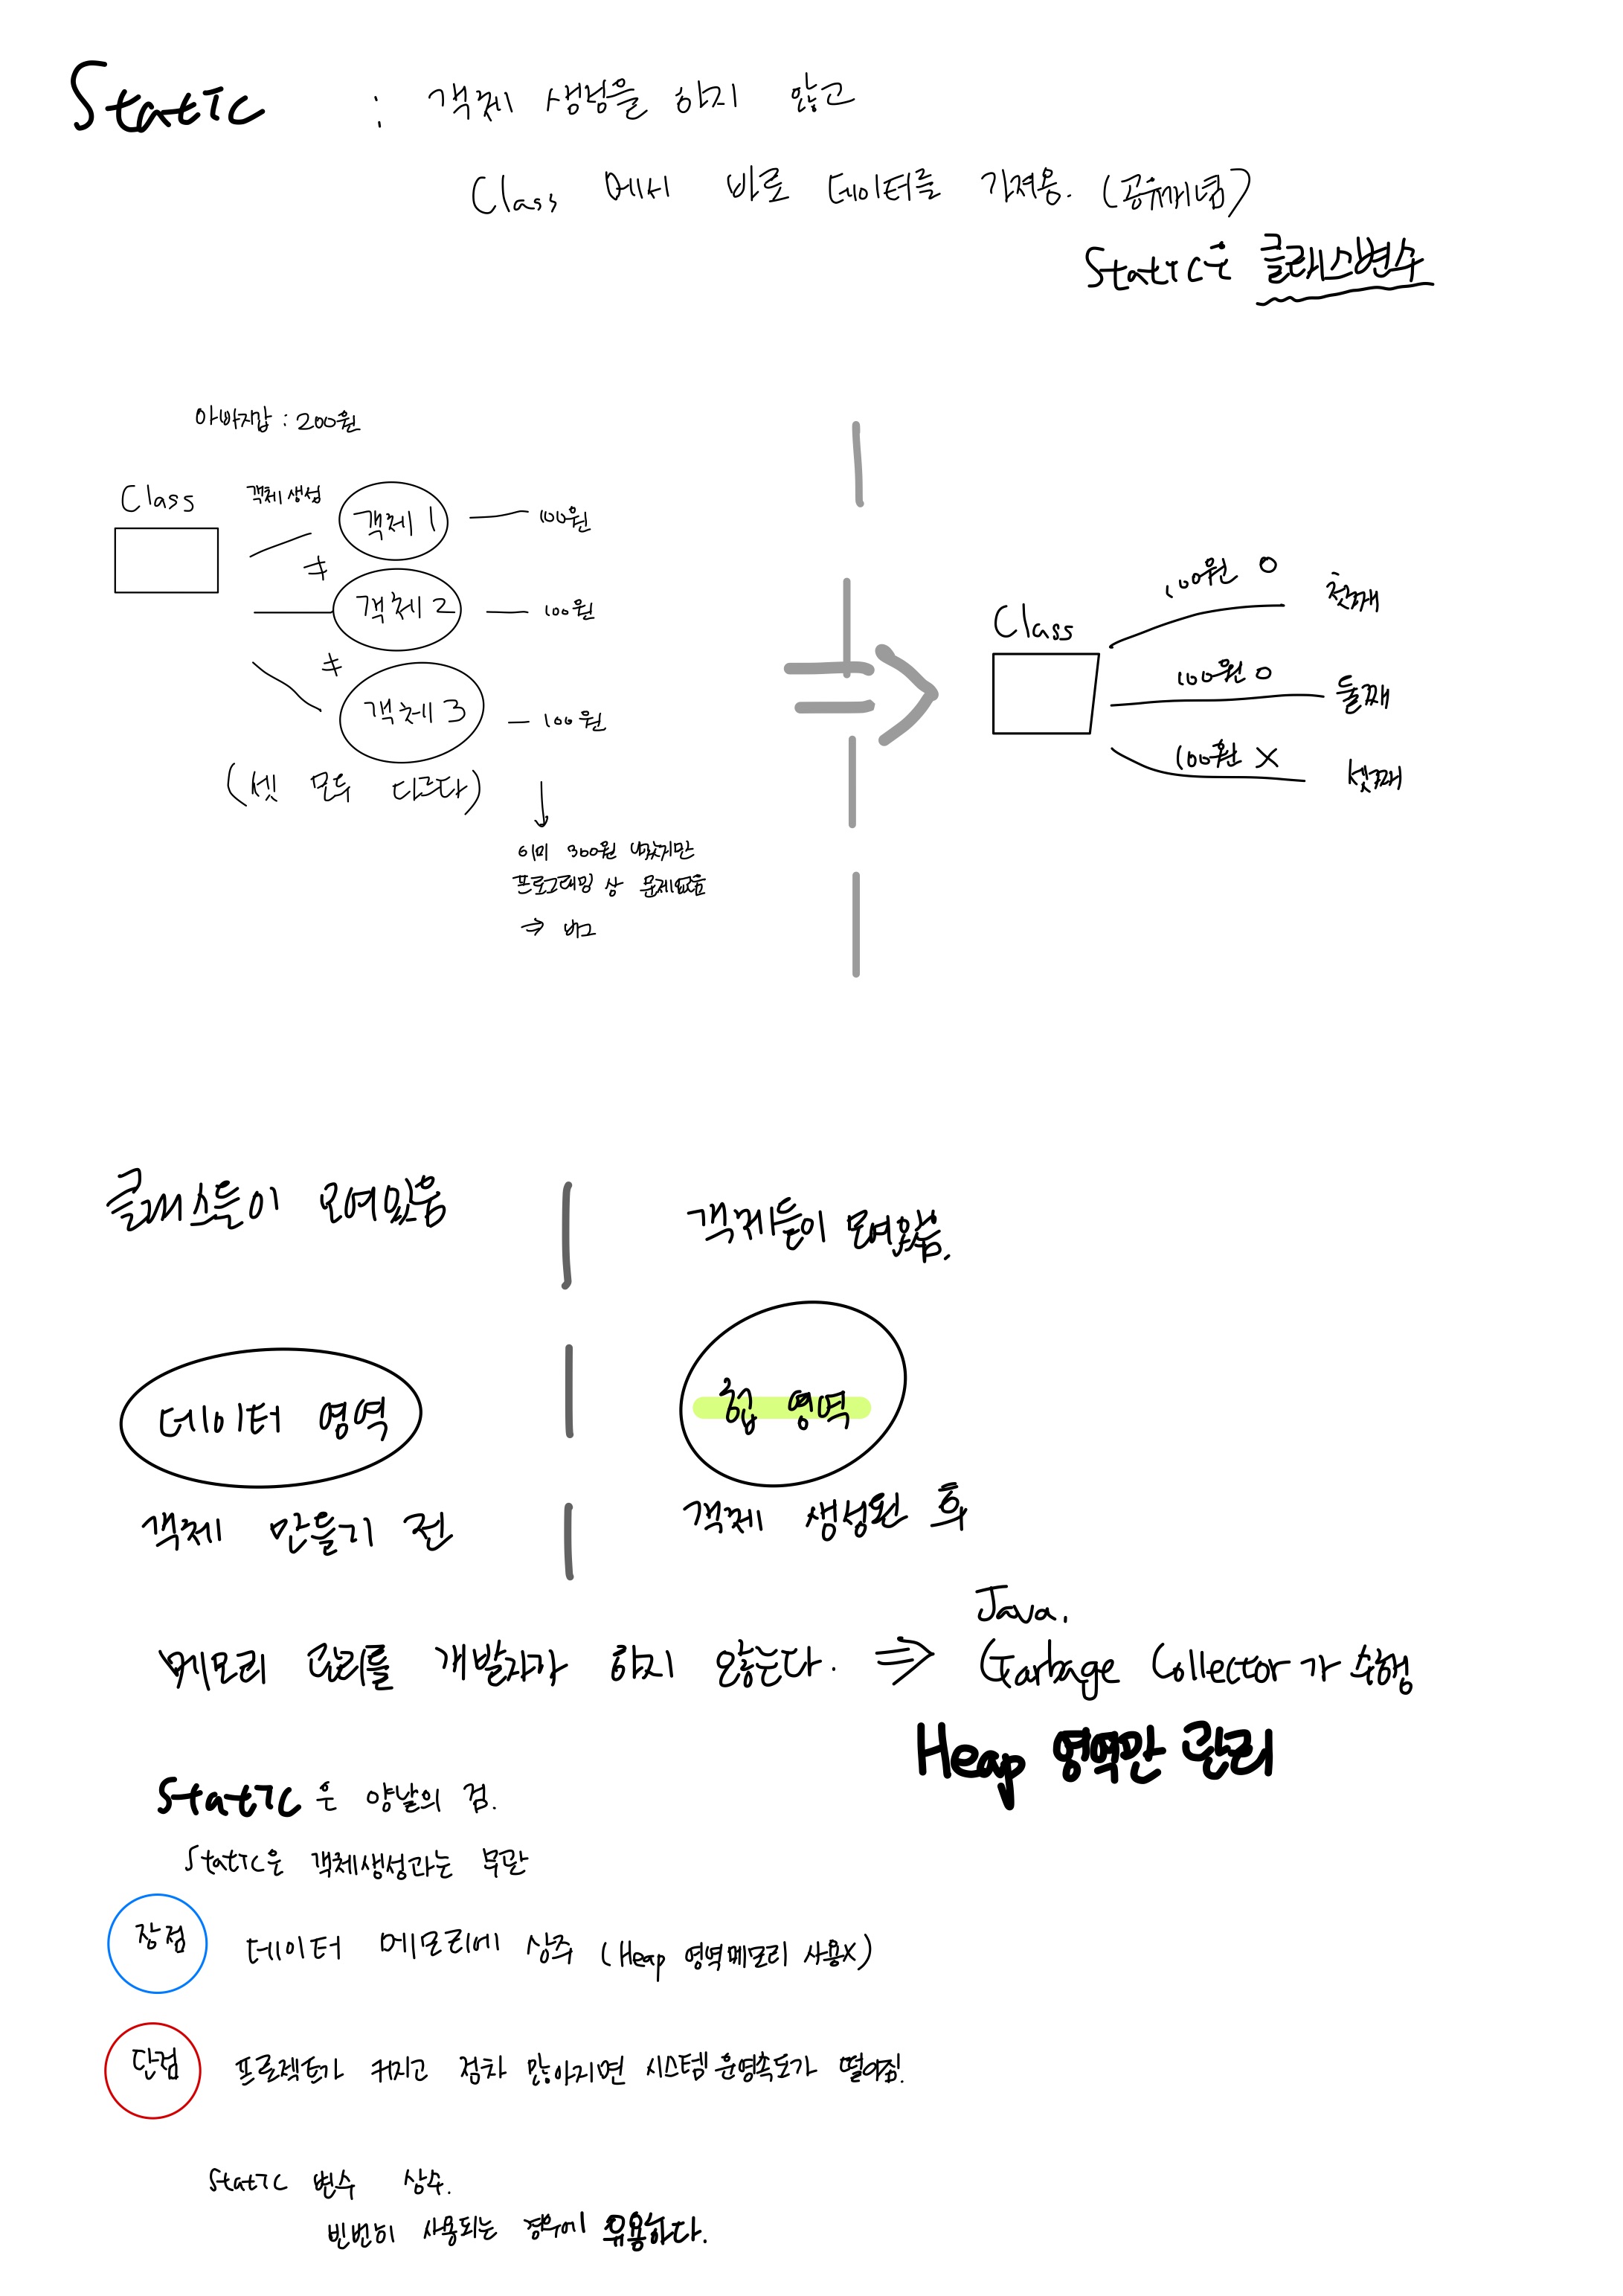 Static : 객체 생성을 하지 않고
Class 에서 바로 데이터를 가져옴. (공유개념)
Static은 클래스변수
아빠지갑 : 200원
Class
객체 생성
객체 1
100원
≠
객체 2
100원
≠
객체 3
100원
(셋 모두 다르다)
↓
이미 300원 넘었지만
프로그래밍 상 문제없음
⇒ 버그
⇒
Class
100원 O 첫째
100원 O 둘째
100원 X 셋째
클래스들이 모여있음
객체들이 모여있음.
데이터 영역
힙 영역
객체 만들기 전
객체 생성된 후
메모리 관리를 개발자가 하지 않는다. ⇒
Java.
Garbage Collector가 수행
Heap 영역만 관리
Static 은 양날의 검.
Static은 객체생성과는 무관
장점
데이터 메모리에 상주 (Heap 영역메모리 사용X)
단점
프로젝트가 커지고 점차 많아지면 시스템 운영속도가 떨어짐.
Static 변수 상수.
빈번히 사용되는 경우에 유용하다.